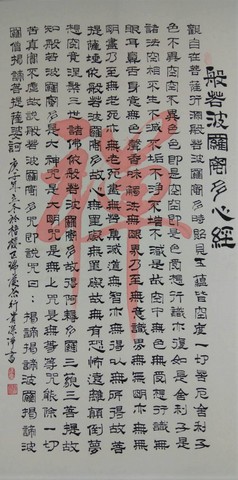 般若波羅蜜多心經
觀自在菩薩行深般若波羅蜜多時照見五蘊皆空度一切苦厄舍利子
色不異空空不異色色即是空空即是色受想行識亦復如是舍利子是
諸法空相不生不滅不垢不淨不增不減是故空中無色無受想行識無
眼耳鼻舌身意無色聲香味觸法無眼界乃至無意識界無無明亦無無
明盡乃至無老死亦無老死盡無苦集滅道無智亦無得以無所得故菩
提薩埵依般若波羅蜜多故心無罣礙無罣礙故無有恐怖遠離顛倒夢
想究竟涅槃三世諸佛依般若波羅蜜多故得阿耨多羅三藐三菩提故
知般若波羅蜜多是大神咒是大明咒是無上咒是無等等咒能除一切
苦真實不虛故說般若波羅蜜多咒即說咒曰揭諦揭諦波羅揭諦波
羅僧揭諦菩提薩婆訶
禪